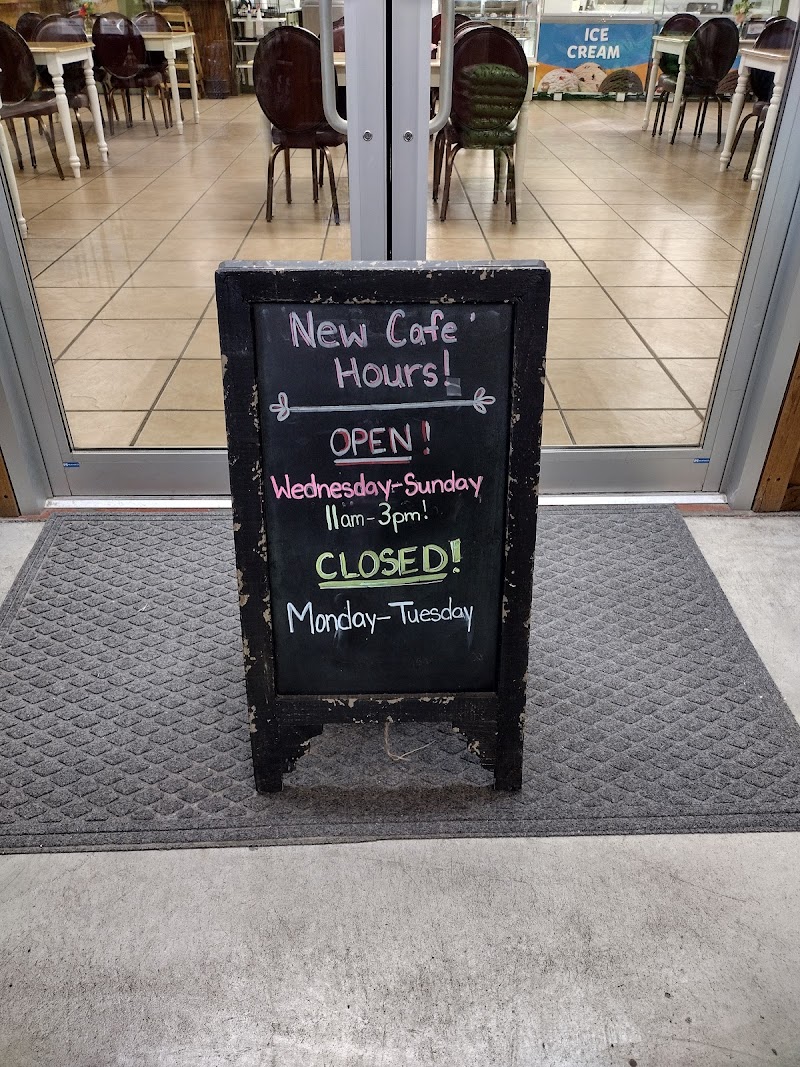 ICE
CREAM
New Cafe
Hours!
OPEN!
Wednesday-Sunday
11am-3pm!
CLOSED!
Monday-Tuesday